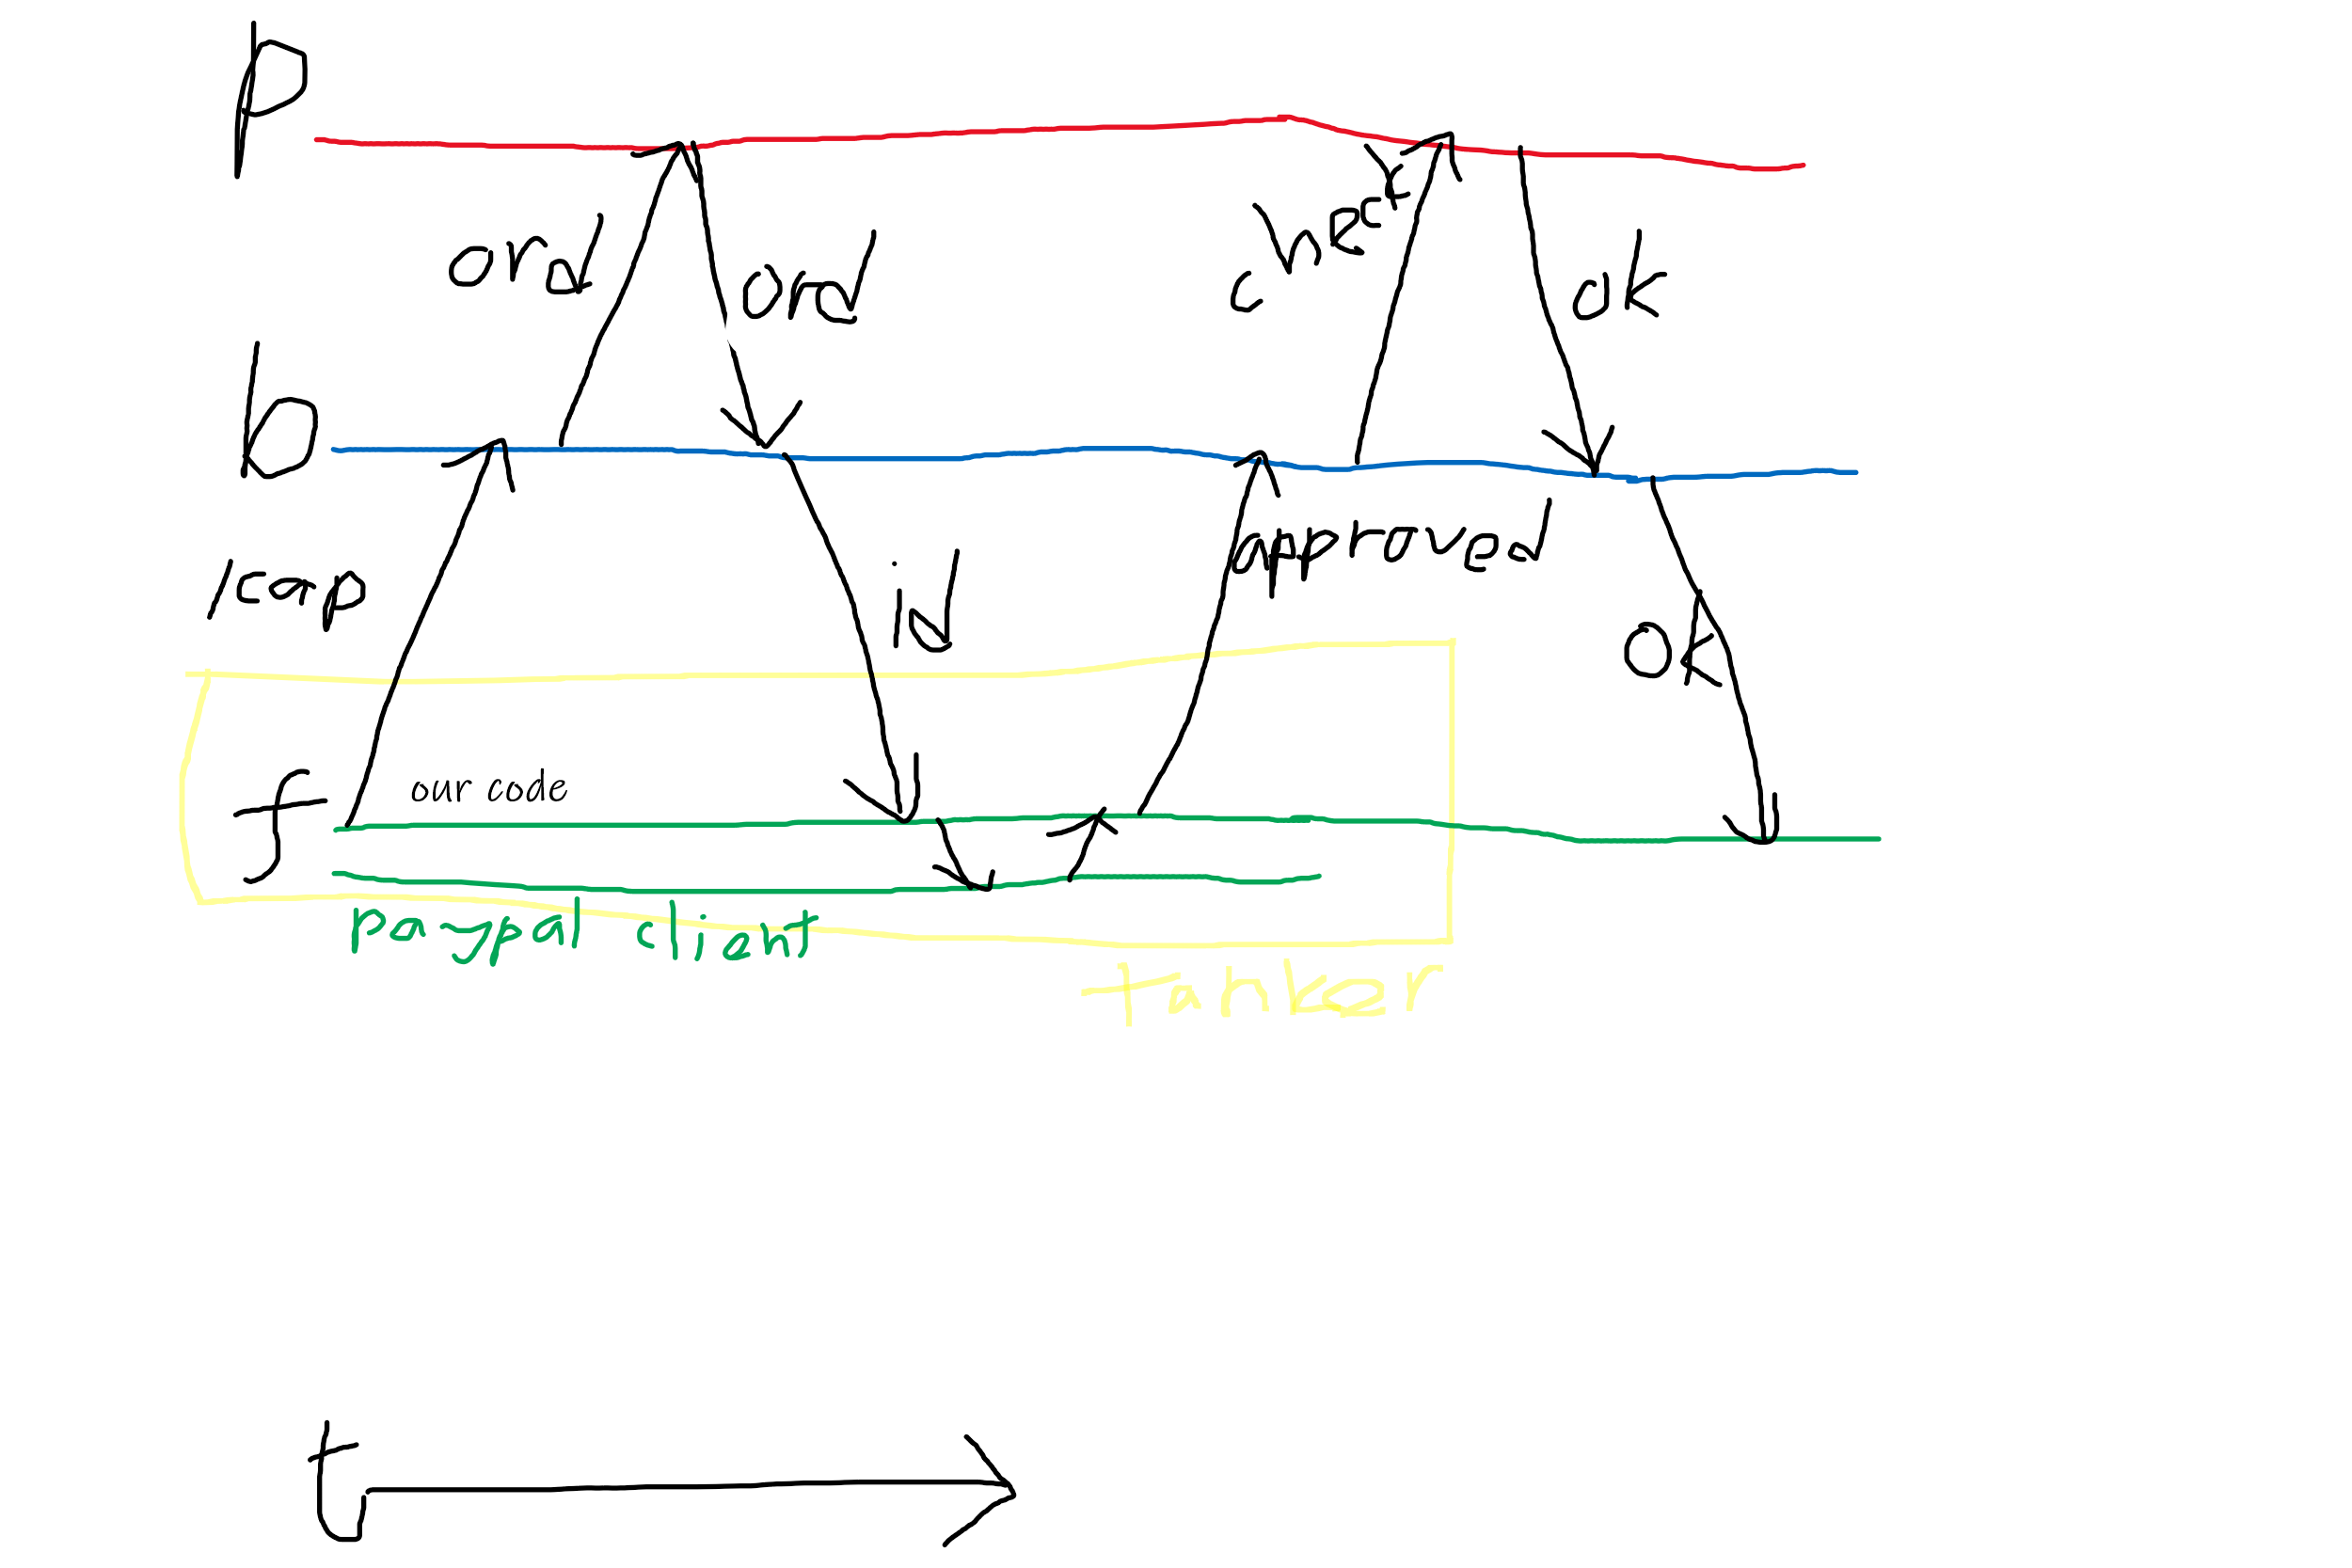 p
ord
ord
check
ok
b
/cap
id
approved
ok
f
our code
Paypal client
Tanker
t